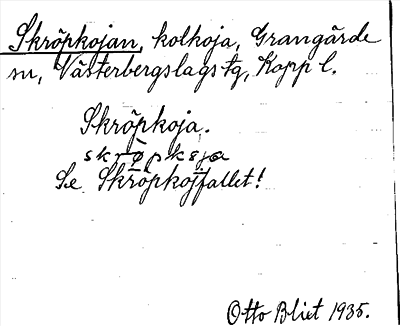 Skröpkojan, kolkoja, Grangärde
sn, Västerbergslags tg, Kopp l.
Skröpkoja.
skrǿpkɷja
Se Skröpkojfallet!
Otto Blixt 1935.